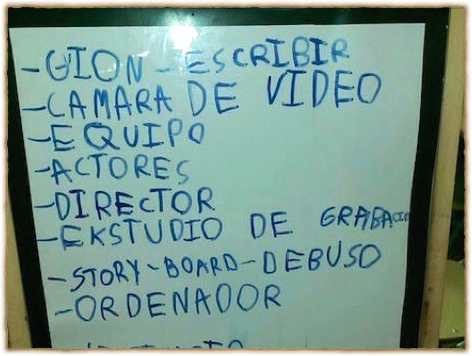 -GION-ESCRIBIR
-CAMARA DE VIDEO
-EQUIPO
-ACTORES
-DIRECTOR
-EKSTUDIO DE GRABACIO
-STORY-BOARD-DEBUSO
-ORDENADOR